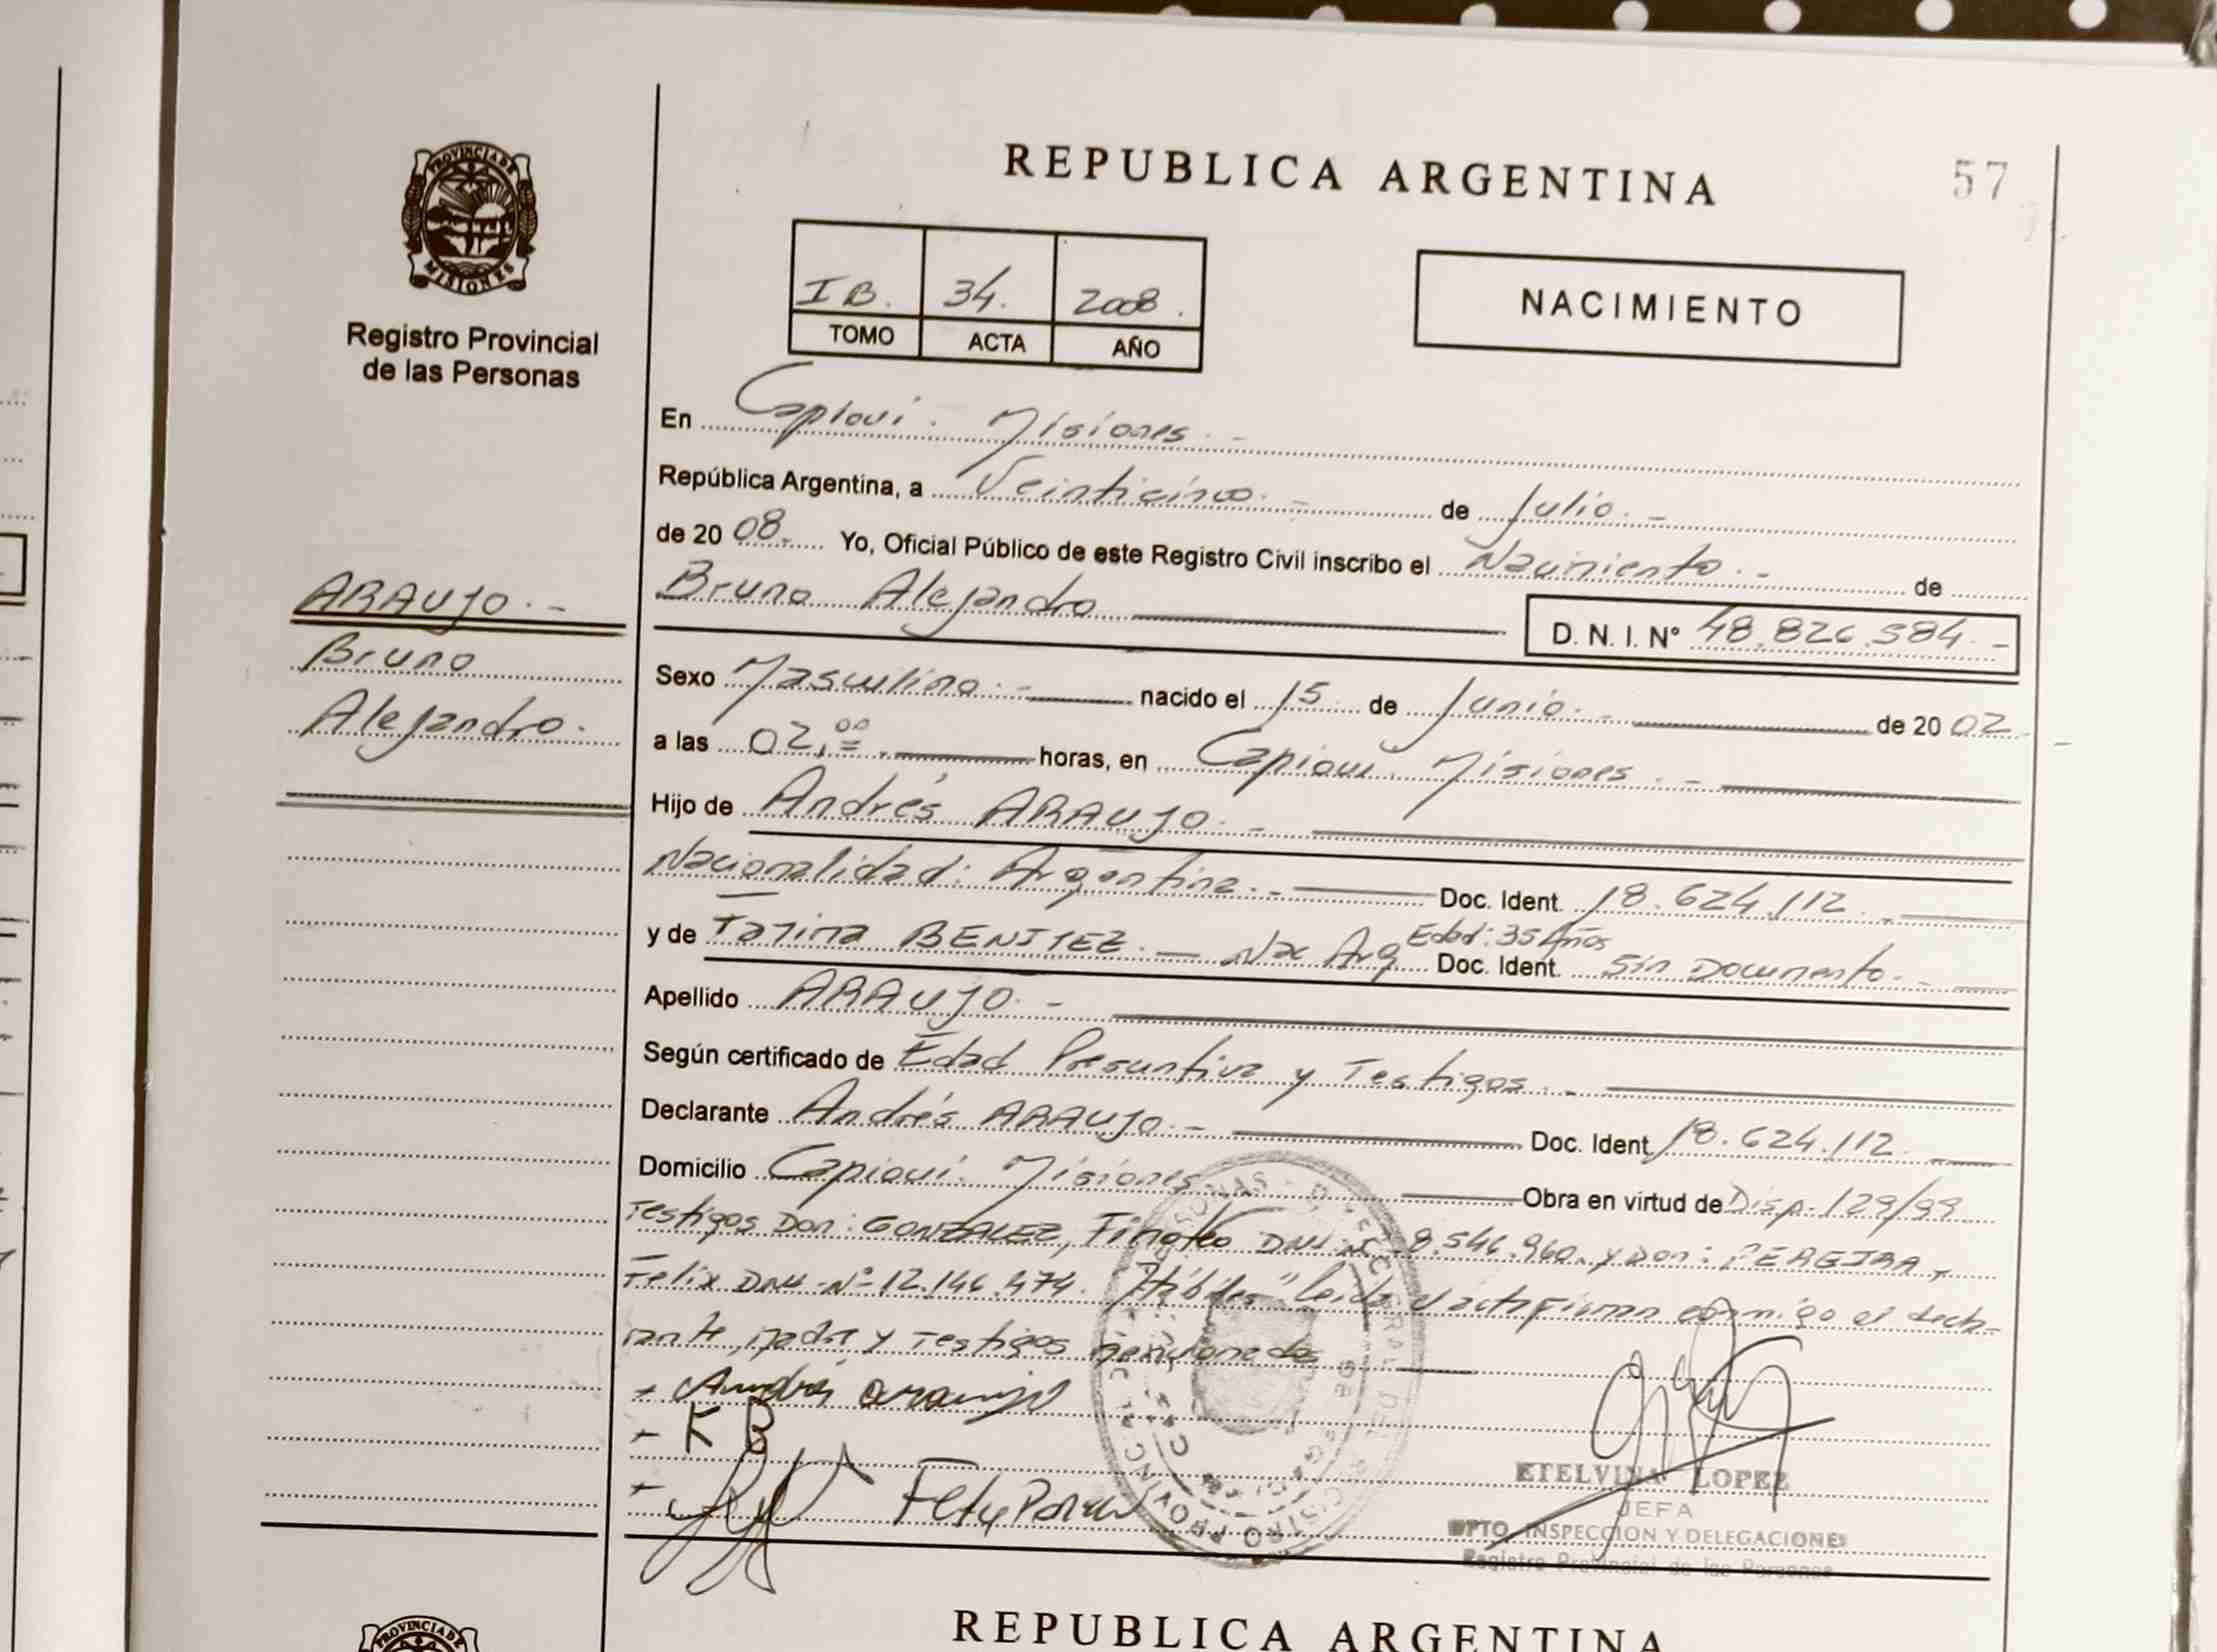 REPUBLICA ARGENTINA
57
PROVINCIA DE
MISIONES
Registro Provincial
de las Personas
I B. 34. 2008.
TOMO ACTA AÑO
NACIMIENTO
En Capioví. Misiones. -
República Argentina, a Veinticinco. - de Julio. -
de 2008. Yo, Oficial Público de este Registro Civil inscribo el Nacimiento. - de
Bruno Alejandro
D. N. I. Nº 48.826.584. -
ARAUJO. -
Bruno
Alejandro.
Sexo Masculino. - nacido el 15 de Junio. - de 2002. -
a las 02,00. horas, en Capioví. Misiones. -
Hijo de Andrés ARAUJO. -
Nacionalidad: Argentina. - Doc. Ident. 18.624.112. -
y de BENITEZ. - Nac Arg Edad: 35 Años Doc. Ident. Sin Documento. -
Apellido ARAUJO. -
Según certificado de Edad Presuntiva y Testigos. -
Declarante Andrés ARAUJO. - Doc. Ident. 18.624.112.
Domicilio Capioví. Misiones. Obra en virtud de Disp. 129/99
Testigos Don: GONZALEZ, Timoteo DNI. Nº 8.546.960. y Don: PEREIRA,
Felix DNI. Nº 12.146.474. "Hábiles" leida el acta firman conmigo el decla-
rante, madre y Testigos mencionados
Andrés araujo
K B
ETELVINA LOPEZ
JEFA
DPTO. INSPECCION Y DELEGACIONES
Registro Provincial de las Personas
PROVINCIA DE
REPUBLICA ARGENTINA